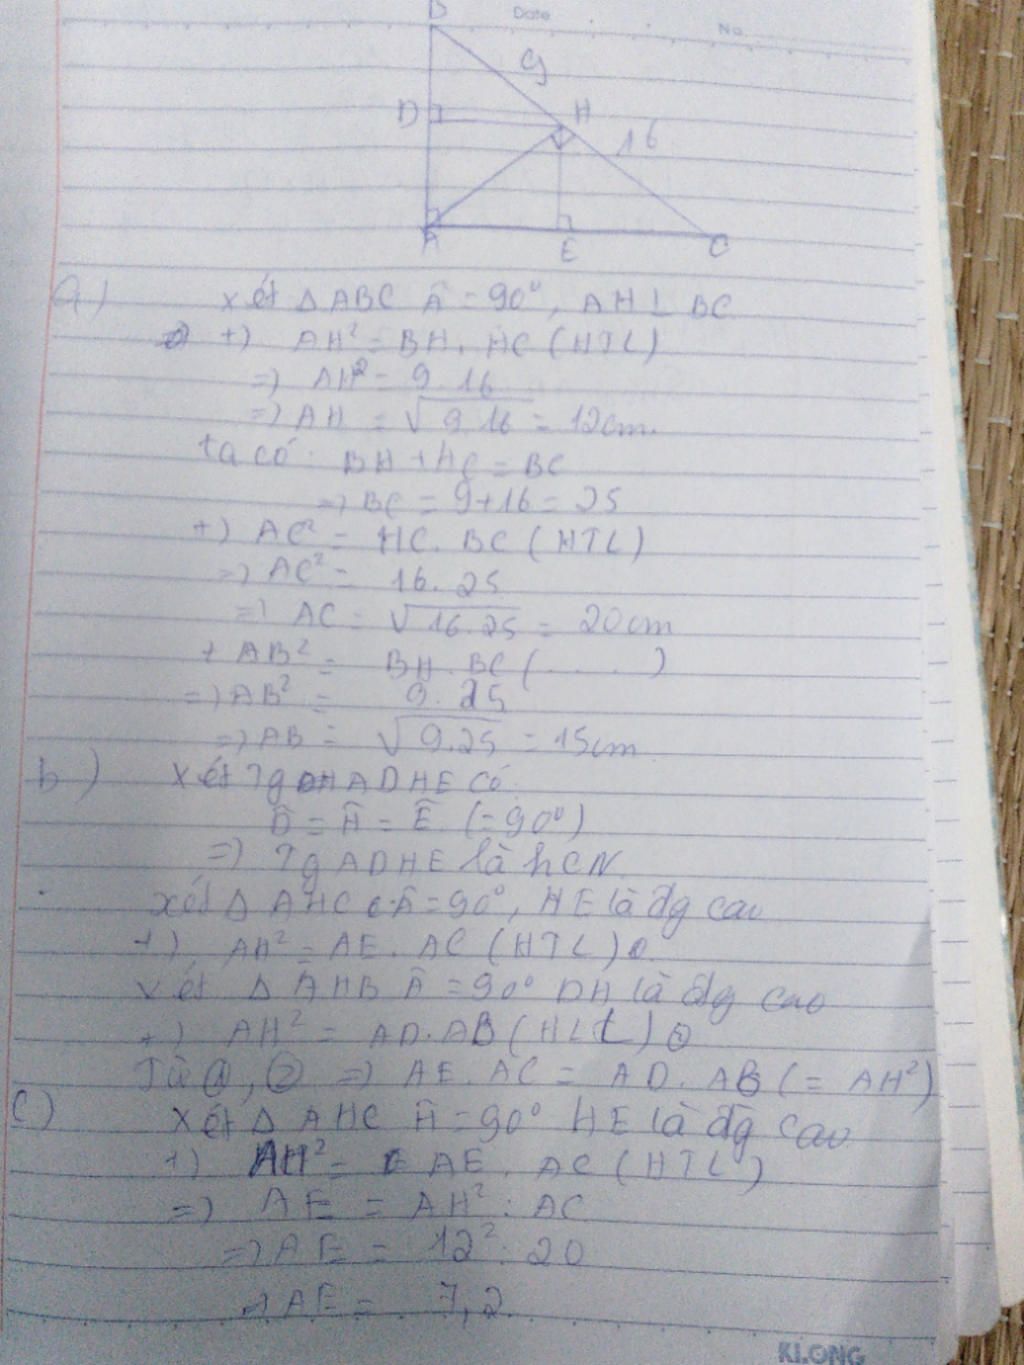 Date
No.
B
9
D
H
16
A
E
C
a) xét △ ABC Â = 90°, AH ⊥ BC
+) AH² = BH . HC (HTL)
=) AH² = 9.16
=) AH = √9.16 = 12cm.
ta có: BH + HC = BC
=) BC = 9+16 = 25
+) AC² = HC. BC (HTL)
=) AC² = 16.25
=) AC = √16.25 = 20cm
+ AB² = BH. BC (.......)
=) AB² = 9.25
=) AB = √9.25 = 15cm
b) Xét Tg ADHE có
D̂ = Â = Ê (=90°)
=) Tg ADHE là hCN
xét △ AHC có Â = 90°, HE là đg cao
+) AH² = AE. AC (HTL)
xét △ AHB Â = 90° DH là đg cao
+) AH² = AD. AB (HLt) ②
Từ ①, ② =) AE. AC = AD. AB (= AH²)
c) Xét △ AHC Ĥ = 90° HE là đg cao
+) AH² = AE. AC (HTL)
=) AE = AH² : AC
=) AE = 12² : 20
=) AE = 7,2
KLONG